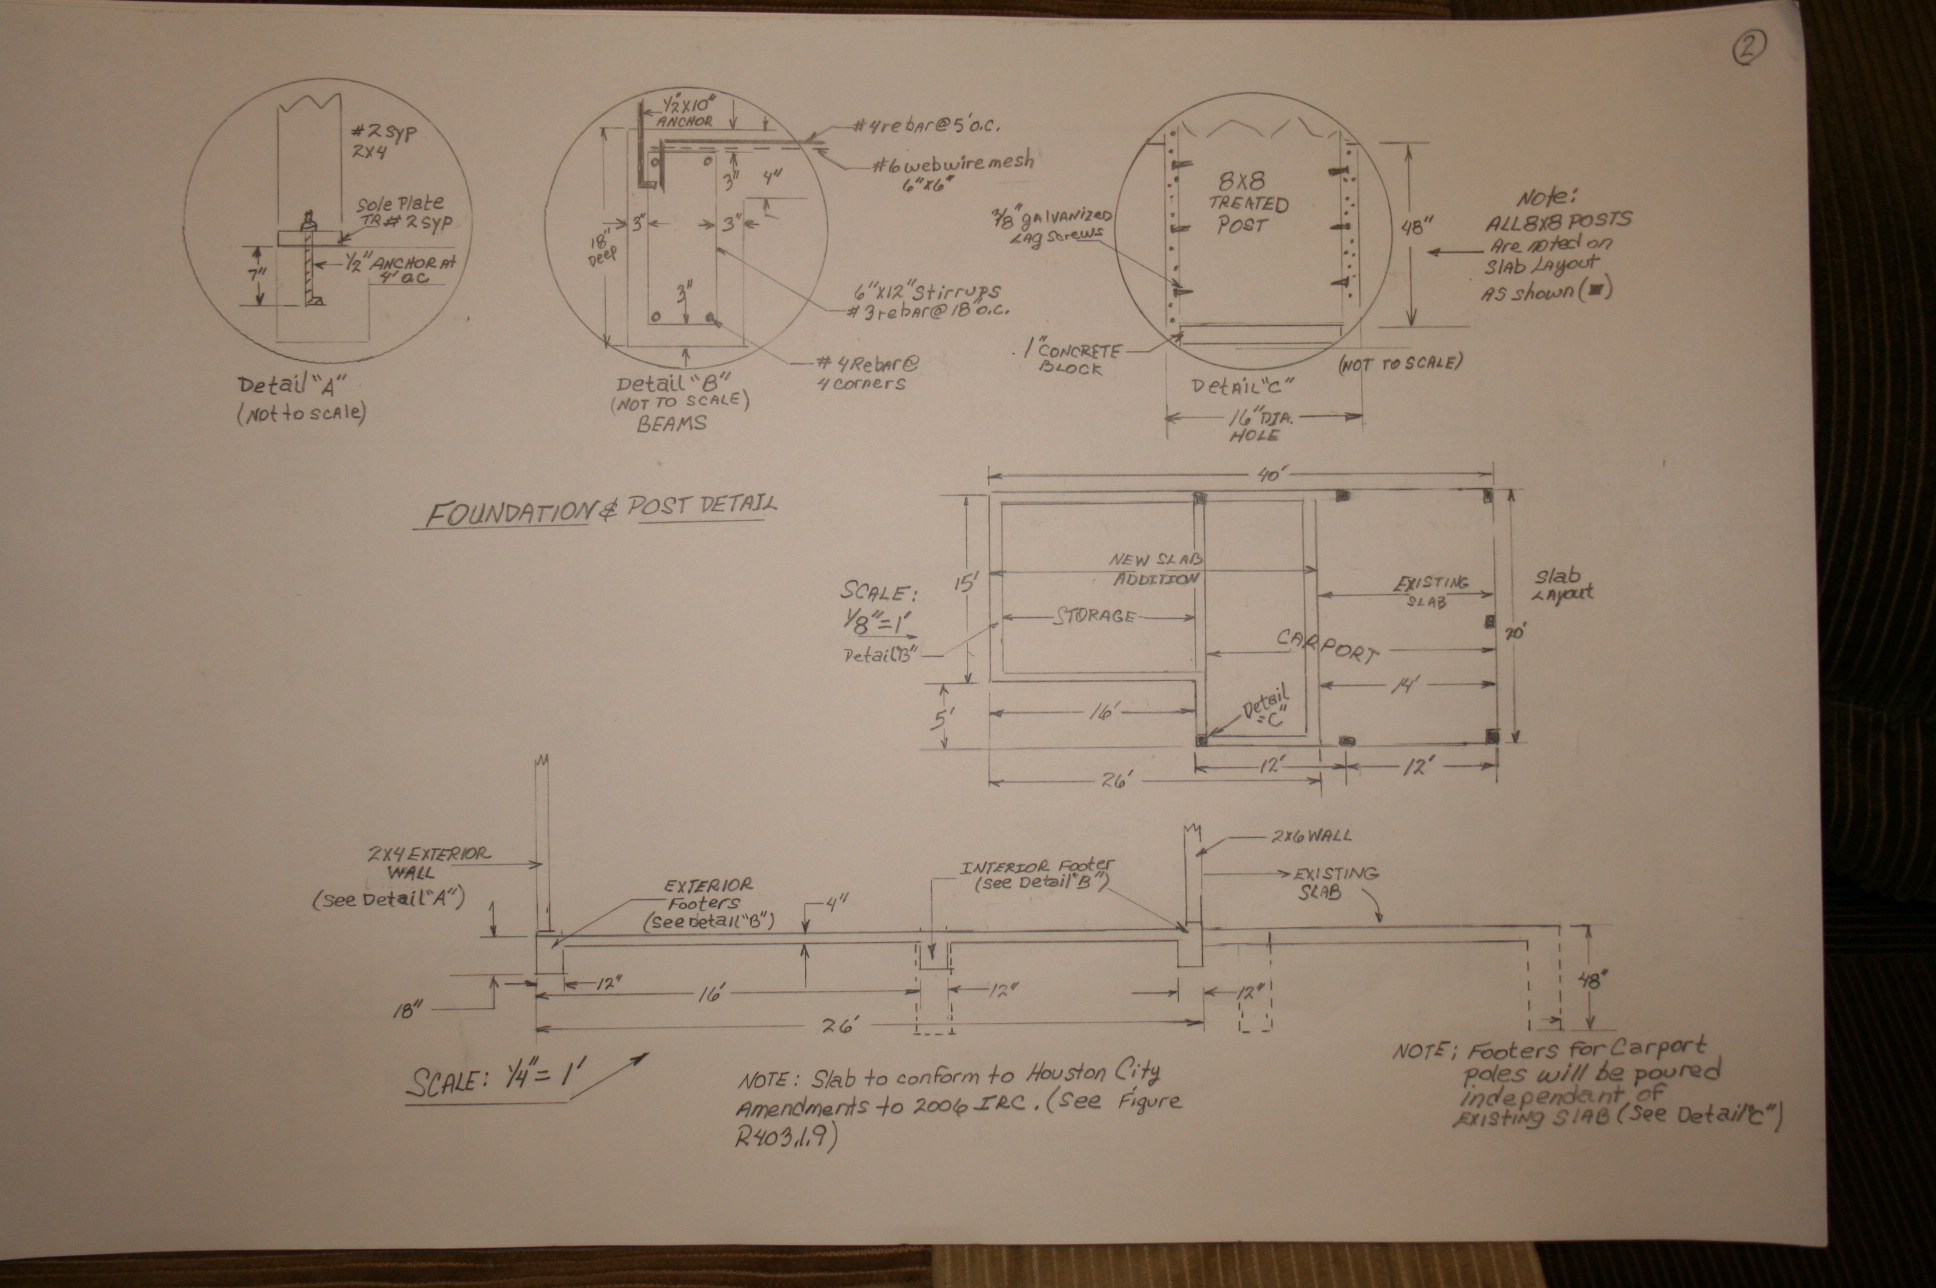 2
#2 SYP
2X4
Sole Plate
TR #2 SYP
7"
1/2" ANCHOR AT
4' OC
Detail "A"
(Not to scale)
1/2"X10"
ANCHOR
#4 rebar @ 5' o.c.
#6 webwire mesh
6"X6"
3"
4"
3"
3"
18"
Deep
3"
6"X12" Stirrups
#3 rebar @ 18" o.c.
#4 Rebar @
4 corners
Detail "B"
(NOT TO SCALE)
BEAMS
8X8
TREATED
POST
3/8" GALVANIZED
LAG Screws
48"
1" CONCRETE
BLOCK
(NOT TO SCALE)
Detail "C"
16" DIA.
HOLE
Note:
ALL 8X8 POSTS
Are noted on
Slab Layout
AS shown (■)
FOUNDATION & POST DETAIL
40'
15'
NEW SLAB
ADDITION
EXISTING
SLAB
Slab
Layout
SCALE:
1/8"=1'
STORAGE
20'
Detail "B"
CARPORT
14'
5'
16'
Detail
"C"
12'
12'
26'
2X4 EXTERIOR
WALL
(See Detail "A")
EXTERIOR
Footers
(See Detail "B")
4"
INTERIOR Footer
(See Detail "B")
2X6 WALL
EXISTING
SLAB
18"
12"
16'
12"
12"
48"
26'
SCALE: 1/4"= 1'
NOTE: Slab to conform to Houston City
Amendments to 2006 IRC. (See Figure
R403.1.9)
NOTE: Footers for Carport
poles will be poured
independant of
EXISTING SLAB (See Detail "C")